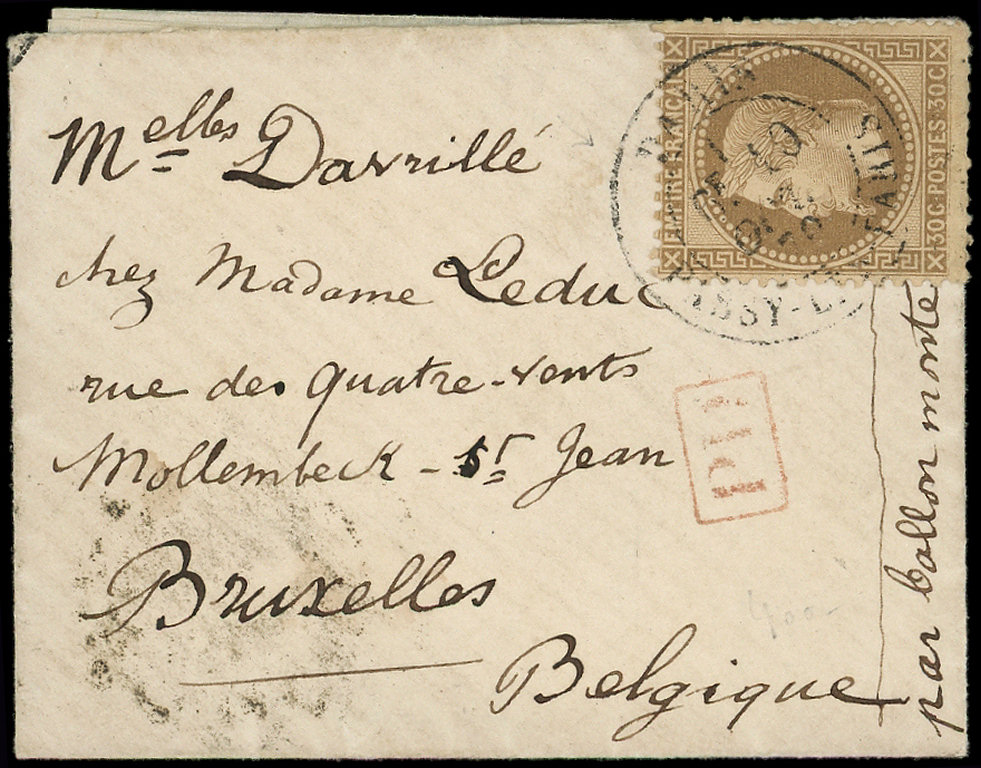 Melles Davrillé
chez Madame Leduc
rue des quatre-vents
Mollembeck - St Jean
Bruxelles
Belgique
par ballon monté
EMPIRE FRANÇAIS
30C·POSTES·30C
PARIS
PP